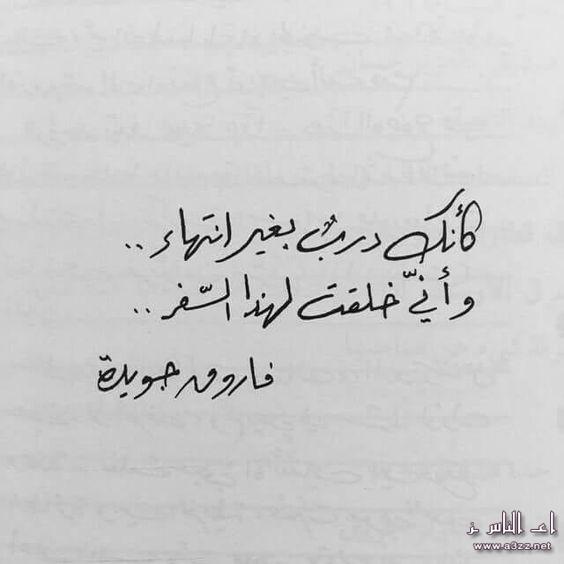 كأنك دربٌ بغير انتهاء ..
وأنيّ خلقت لهذا السّفر ..
فاروق جويدة
اعـ الناس ـز
www.a3zz.net